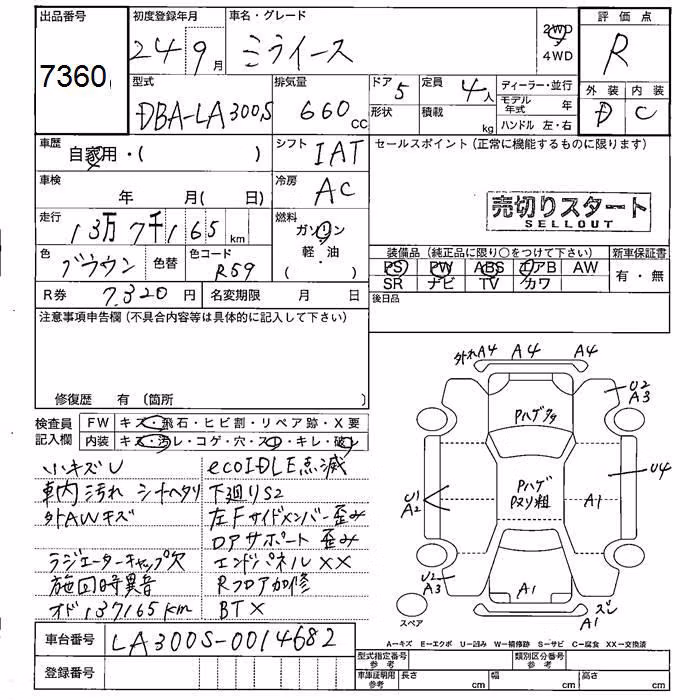 出品番号 初度登録年月 車名・グレード 2WD 4WD 評価点
7360 24年9月 ミライース R
型式 排気量 ドア 5 定員 4人 ディーラー・並行 外装 内装
DBA-LA300S 660cc 形状 積載 kg モデル年式 年 D C
ハンドル 左・右
車歴 自家用・( ) シフト IAT セールスポイント(正常に機能するものに限ります)
車検 年 月( 日) 冷房 AC
売切りスタート
SELLOUT
走行 13万7千165km 燃料 ガソリン
軽・油
( ・ )
色 ブラウン 色替 色コード R59
装備品(純正品に限り○をつけて下さい) 新車保証書
PS PW ABS エアB AW 有・無
SR ナビ TV カワ
R券 7,320円 名変期限 月 日 後日品
注意事項申告欄(不具合内容等は具体的に記入して下さい)
修復歴 有(箇所 )
検査員記入欄 FW キズ・飛石・ヒビ割・リペア跡・X要
内装 キズ・汚レ・コゲ・穴・スレ・キレ・破レ
小キズU ecoIDLE点滅
車内汚れ シートヘタリ 下廻りS2
外AWキズ 左Fサイドメンバー歪み
ロアサポート歪み
ラジエーターキャップ欠 エンドパネルXX
施回時異音 Rフロア加修
オド137165km BTX
外れA4 A4 A4
U2
A3
Pハゲ多
U4
Pハゲ
Pヌリ粗
U1
A2
A1
U2
A3
A1
ズレ
A1
スペア
A-キズ E-エクボ U-凹み W-補修跡 S-サビ C-腐食 XX-交換済
車台番号 LA300S-0014682
登録番号
型式指定番号 参考 類別区分番号 参考
車庫証明用 参考 長さ cm 幅 cm 高さ cm